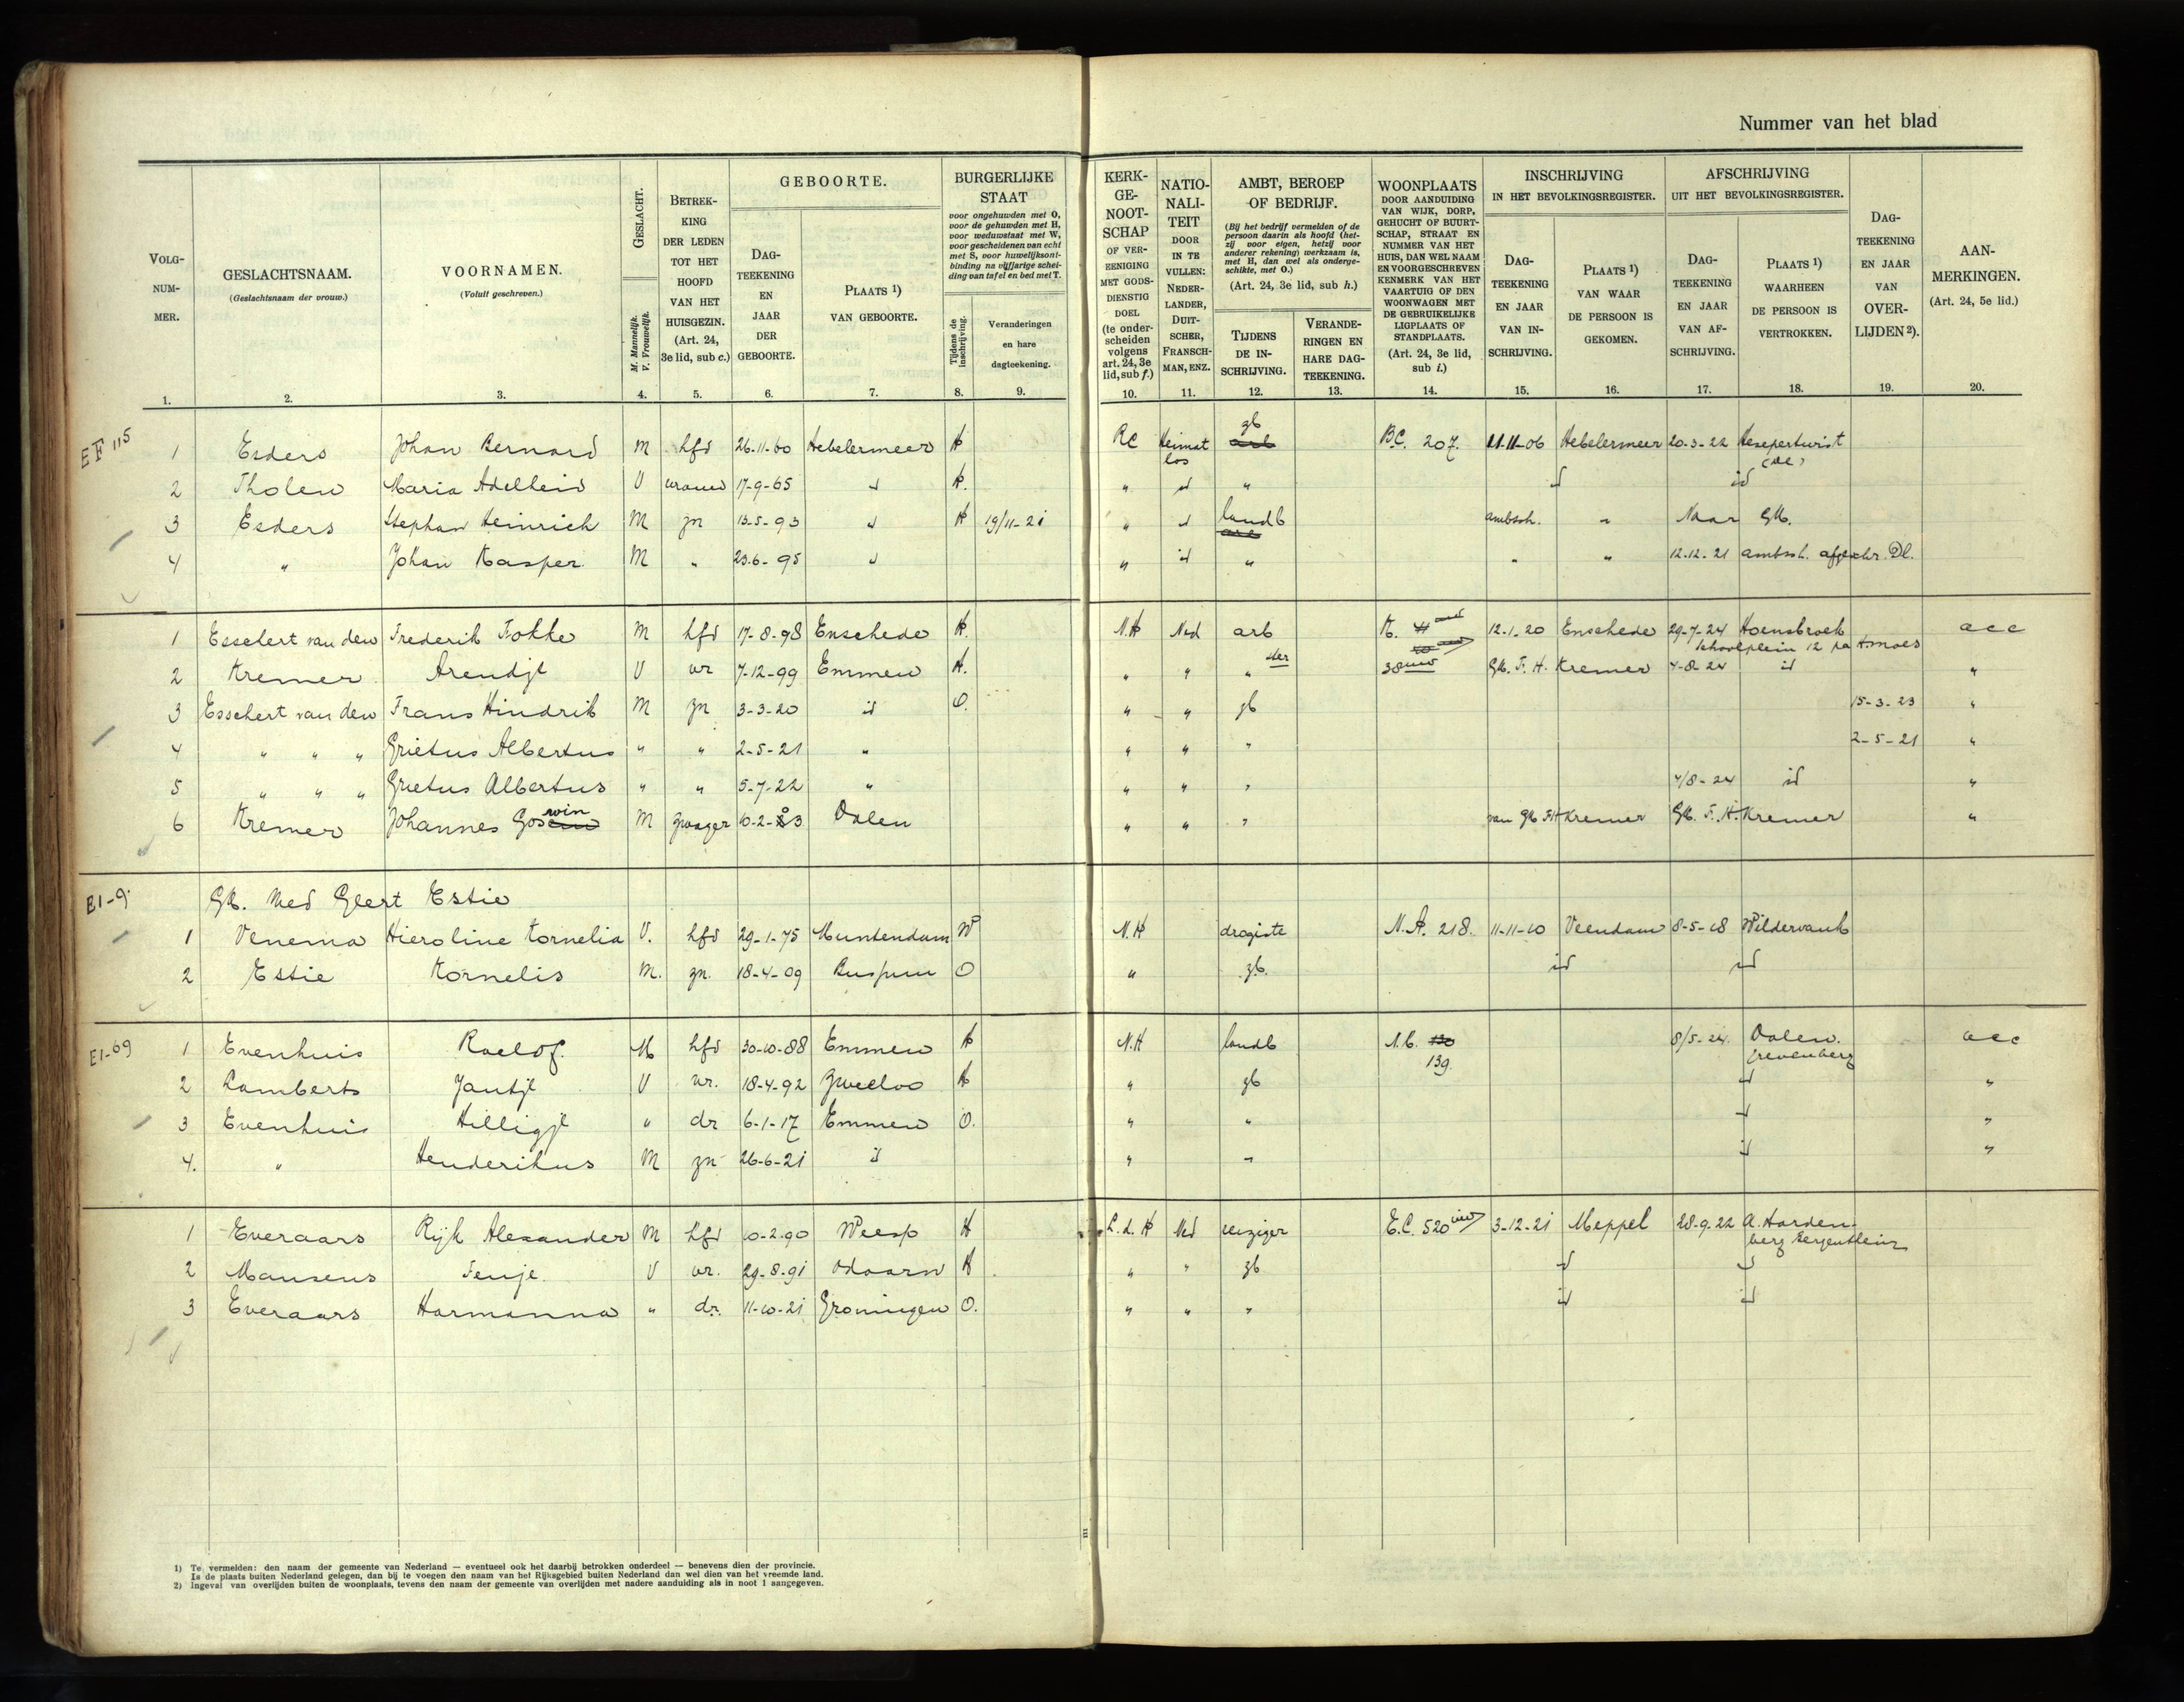 Nummer van het blad
VOLG-NUM-MER. 1.
GESLACHTSNAAM. (Geslachtsnaam der vrouw.) 2.
VOORNAMEN. (Voluit geschreven.) 3.
GESLACHT. M. Mannelijk. V. Vrouwelijk. 4.
BETREK-KING DER LEDEN TOT HET HOOFD VAN HET HUISGEZIN. (Art. 24, 3e lid, sub c.) 5.
GEBOORTE.
DAG-TEEKENING EN JAAR DER GEBOORTE. 6.
PLAATS 1) VAN GEBOORTE. 7.
BURGERLIJKE STAAT
voor ongehuwden met O,
voor de gehuwden met H,
voor weduwstaat met W,
voor gescheidenen van echt
met S, voor huwelijksont-
binding na vijfjarige schei-
ding van tafel en bed met T.
Tijdens de inschrijving. 8.
Veranderingen en hare dagteekening. 9.
KERK-GE-NOOT-SCHAP OF VER-EENIGING MET GODS-DIENSTIG DOEL (te onder-scheiden volgens art. 24, 3e lid, sub f.) 10.
NATIO-NALI-TEIT DOOR IN TE VULLEN: NEDER-LANDER, DUIT-SCHER, FRANSCH-MAN, ENZ. 11.
AMBT, BEROEP OF BEDRIJF.
(Bij het bedrijf vermelden of de
persoon daarin als hoofd (het-
zij voor eigen, hetzij voor
anderer rekening) werkzaam is,
met H, dan wel als onderge-
schikte, met O.)
(Art. 24, 3e lid, sub h.)
TIJDENS DE IN-SCHRIJVING. 12.
VERANDE-RINGEN EN HARE DAG-TEEKENING. 13.
WOONPLAATS DOOR AANDUIDING VAN WIJK, DORP, GEHUCHT OF BUURT-SCHAP, STRAAT EN NUMMER VAN HET HUIS, DAN WEL NAAM EN VOORGESCHREVEN KENMERK VAN HET VAARTUIG OF DEN WOONWAGEN MET DE GEBRUIKELIJKE LIGPLAATS OF STANDPLAATS. (Art. 24, 3e lid, sub i.) 14.
INSCHRIJVING IN HET BEVOLKINGSREGISTER.
DAG-TEEKENING EN JAAR VAN IN-SCHRIJVING. 15.
PLAATS 1) VAN WAAR DE PERSOON IS GEKOMEN. 16.
AFSCHRIJVING UIT HET BEVOLKINGSREGISTER.
DAG-TEEKENING EN JAAR VAN AF-SCHRIJVING. 17.
PLAATS 1) WAARHEEN DE PERSOON IS VERTROKKEN. 18.
DAG-TEEKENING EN JAAR VAN OVER-LIJDEN 2). 19.
AAN-MERKINGEN. (Art. 24, 5e lid.) 20.
EF 115
1 Esders Johan Bernard M hfd 26-11-60 Hebelermeer H RC Heimat los gb arb B.C. 207. 11-11-06 Hebelermeer 20-3-22 Hesepertwist
2 Tholen Maria Adelheid V vrouw 17-9-65 id H. " id " id id
3 Esders Stephan Heinrich M zn 13-5-93 id H 19/11-21 " id landb arb ambtsh. " Naar GK.
4 " Johan Kasper M " 23-6-95 id " id " " " 12-12-21 ambtsh. afgeschr. Dl.
1 Esschert van den Frederik Fokke M hfd 17-8-98 Enschede H. N.H Ned arb K. 12-1-20 Enschede 29-7-24 Hoensbroek Schoolplein 12 acc
2 Kremer Arendje V vr 7-12-99 Emmen H. " " " 38 GK. F. H. Kremer 4-8-24 id "
3 Esschert van den Frans Hindrik M zn 3-3-20 id O. " " gb 15-3-23 "
4 " " " Grietus Albertus " " 2-5-21 " " " " 2-5-21 "
5 " " " Grietus Albertus " " 5-7-22 " " " " 4/8-24 id "
6 Kremer Johannes Goswin M zwager 10-2-03 Dalen " " " van GK FH Kremer GK. F. H. Kremer "
E1-9.
GK. Wed Geert Estie
1 Venema Hieroline Kornelia V. hfd 29-1-75 Muntendam W N.H drogiste N.A. 218. 11-11-10 Veendam 8-5-18 Wildervank
2 Estie Kornelis M. zn. 18-4-09 Bussum O " gb. id id
E1-69
1 Evenhuis Roelof. M hfd 30-10-88 Emmen H N.H landb 139 8/5-24. Dalen. acc
2 Lamberts Jantje V vr. 18-4-92 Zweeloo H " gb id "
3 Evenhuis Hilligje " dr 6-1-17 Emmen O. " " id "
4. " Henderikus M zn 26-6-21 id " " id "
1 Everaars Rijk Alexander M hfd 10-2-90 Weesp H Ned reiziger E.C. 520 3-12-21 Meppel 28-9-22 A. Hardenberg
2 Mansens Fenje V vr. 29-8-91 Odoorn H " " gb id id
3 Everaars Harmanna " dr. 11-10-21 Groningen O. " " " id id
1) Te vermelden: den naam der gemeente van Nederland — eventueel ook het daarbij betrokken onderdeel — benevens dien der provincie.
Is de plaats buiten Nederland gelegen, dan bij te voegen den naam van het Rijksgebied buiten Nederland dan wel dien van het vreemde land.
2) Ingeval van overlijden buiten de woonplaats, tevens den naam der gemeente van overlijden met nadere aanduiding als in noot 1 aangegeven.